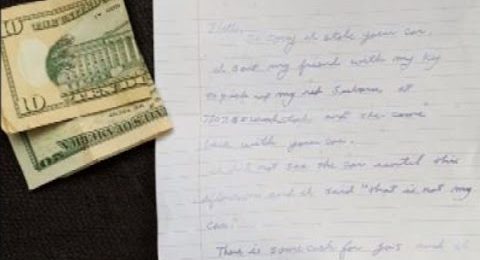 10
10
Hello,
So sorry I stole your car.
I sent my friend with my key
to pick up my red Subaru at
and she came
back with your car.
I did not see the car until this
afternoon and I said "that is not my
car."
There is some cash for gas and I